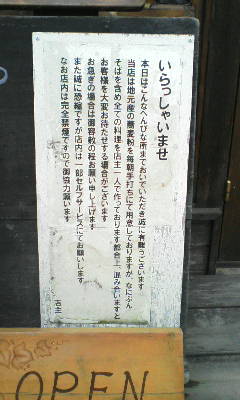 いらっしゃいませ
本日はこんなへんぴな所までおいでいただき誠に有難うございます
当店は地元産の蕎麦粉を毎朝手打ちにて用意しておりますが、なにぶん
そばを含め全ての料理を店主一人で作っております都合上、混み合いますと
お客様を大変お待たせする場合がございます
お急ぎの場合は御容赦の程お願い申し上げます
また誠に恐縮ですが店内は一部セルフサービスにてお願いします
なお店内は完全禁煙ですので御協力願います
店主
OPEN